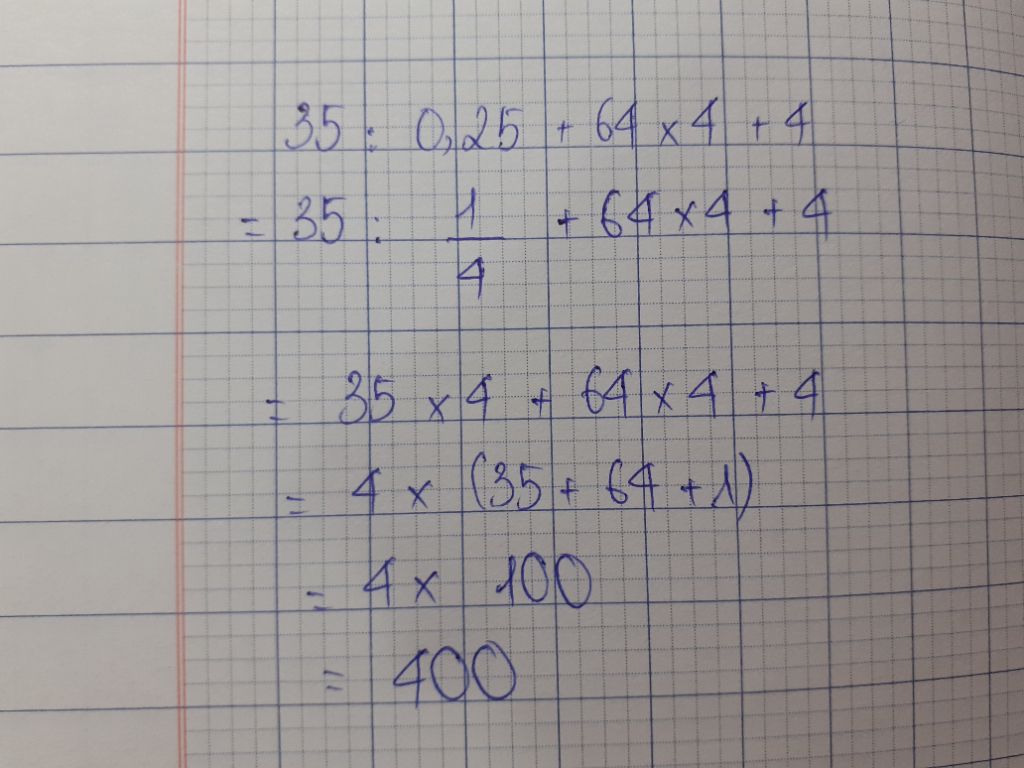 35 : 0,25 + 64 x 4 + 4
= 35 : 1/4 + 64 x 4 + 4
= 35 x 4 + 64 x 4 + 4
= 4 x (35 + 64 + 1)
= 4 x 100
= 400